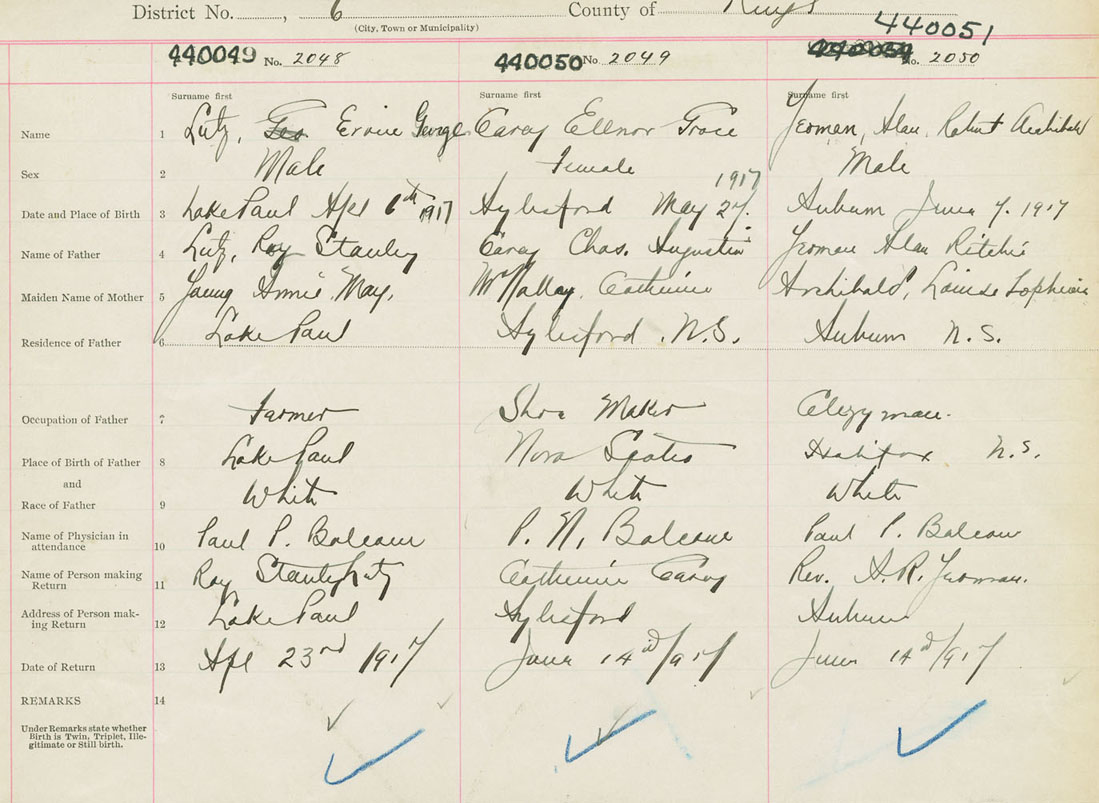 District No. , 6 County of Kings
(City, Town or Municipality)
440051
440049 No. 2048 440050 No. 2049 No. 2050
Surname first Surname first Surname first
Name 1 Lutz, Ervine George Carey Ellnor Grace Yeoman, Alan, Robert Archibald
Sex 2 Male Female Male
Date and Place of Birth 3 Lake Paul Apl 6th 1917 Aylesford May 27. 1917 Auburn June 7. 1917
Name of Father 4 Lutz, Roy Stanley Carey Chas. Augustin Yeoman Alan Ritchie
Maiden Name of Mother 5 Young Annie May, McNally, Catherine Archibald, Louise
Residence of Father 6 Lake Paul Aylesford, N.S. Auburn N.S.
Occupation of Father 7 Farmer Shoe Maker Clergyman.
Place of Birth of Father 8 Lake Paul Nova Scotia Halifax N.S.
and
Race of Father 9 White White White
Name of Physician in
attendance 10 Paul P. Balcom P. N. Balcom Paul P. Balcom
Name of Person making
Return 11 Roy Stanley Lutz Catherine Carey Rev. A. R. Yeoman.
Address of Person mak-
ing Return 12 Lake Paul Aylesford Auburn
Date of Return 13 Apl 23rd 1917 June 14 /917 June 14 /917
REMARKS 14
Under Remarks state whether
Birth is Twin, Triplet, Ille-
gitimate or Still birth.